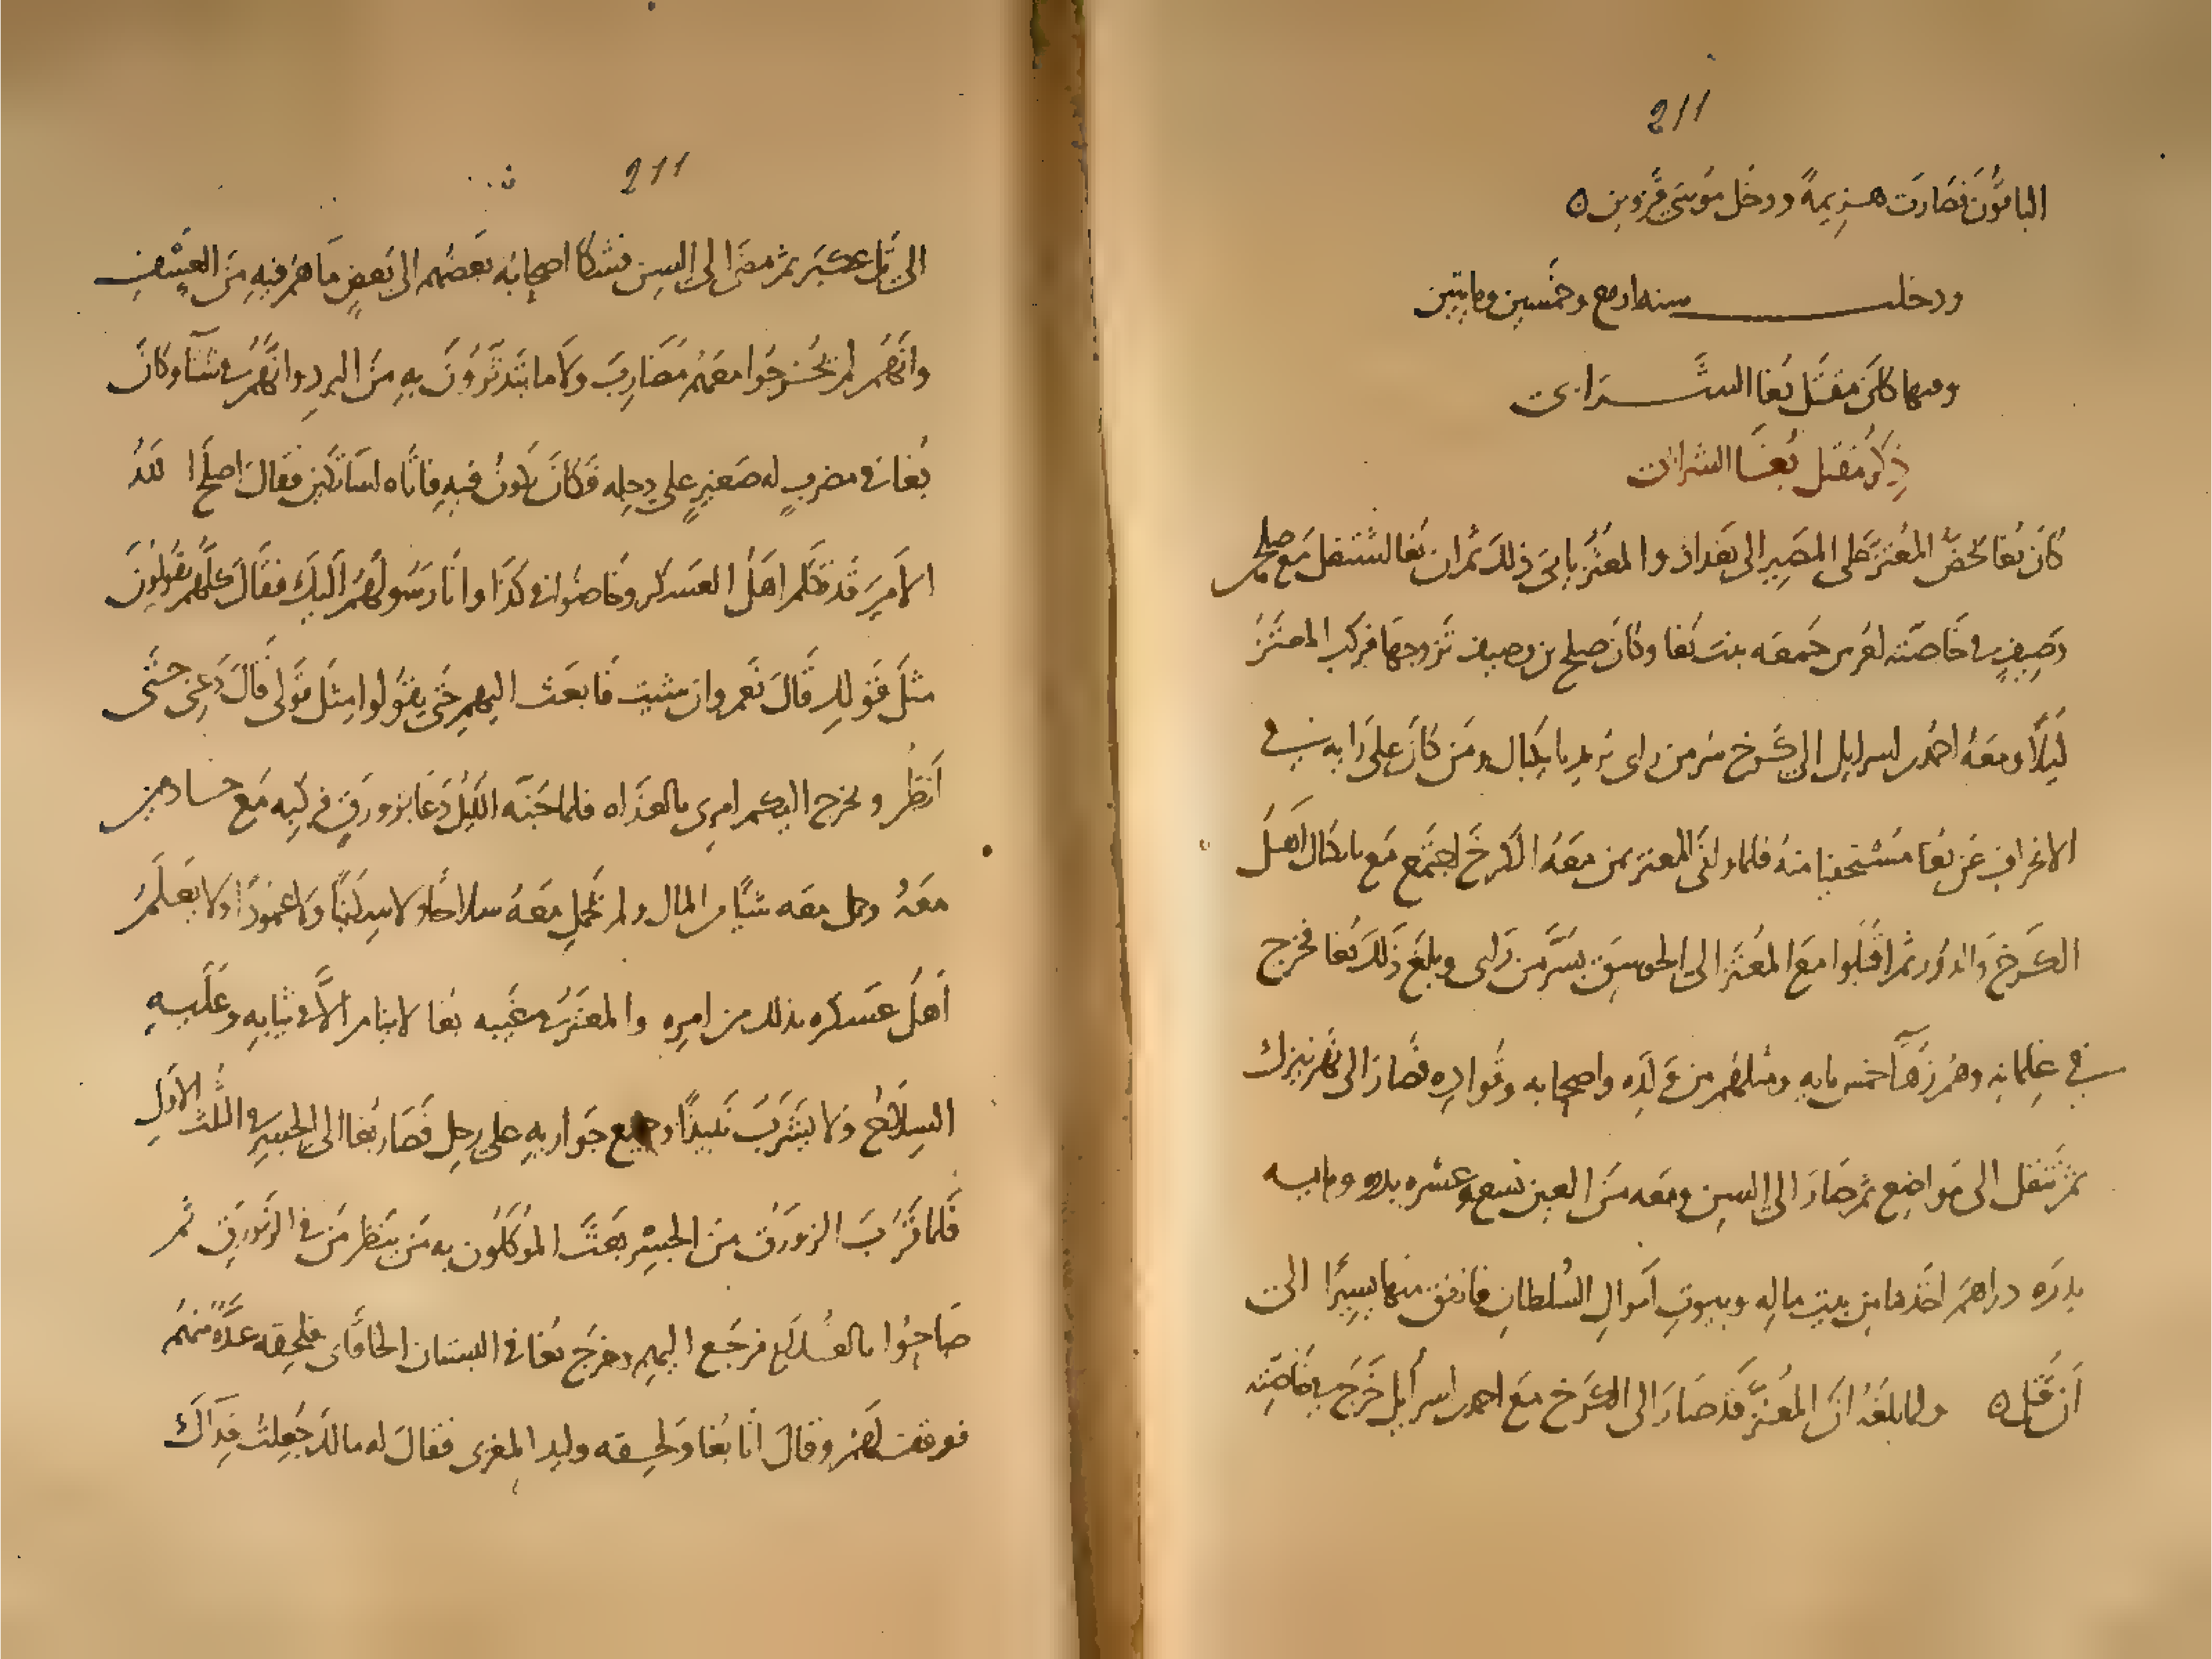 211
الباقون فصارت هزيمة ودخل موسى قزوين ه
ودخلت سنه اربع وخمسين ومايتين
وفيها كان مقتل بغا الشرابى
ذكر مقتل بغا الشرابى
كان بغا يحضّ المعتز على المصير الى بغداد والمعتز يابى ذلك ثم ان بغا اشتغل مع صلح بن
وصيف فى خاصته لعرس جمعه بنت بغا وكان صلح بن وصيف تزوجها فركب المعتز
ليلًا ومعه احمد بن اسرايل الى كرخ سر من راى يريد بايكبال ومن كان على رايه فى
الانحراف عن بغا مستخفيا منه فلما وافى المعتز بمن معه الكرخ اجتمع مع بايكبال اهل
الكرخ والدور ثم اقبلوا مع المعتز الى الجوسق بسر من راى وبلغ ذلك بغا فخرج
فى غلمانه وهم زهآ خمس مايه ومثلهم من ولده واصحابه وقواده فصار الى نهر نيزك
ثم تنقل الى مواضع ثم صار الى السن ومعه من العين تسع عشره بدره ومايه
بدره دراهم اخذها من بيت ماله وبيوت اموال السلطان فانفق منها يسيرًا الى
ان قتل ه ولما بلغه ان المعتز قد صار الى الكرخ مع احمد بن اسرايل خرج فى خاصته
211
الى تل عكبر ثم مضى الى السن فشكا اصحابه بعضهم الى بعض ما هم فيه من العسف
وانهم لم يخرجوا معهم مضارب ولا ما يتدثرون به من البرد وانهم فى شتآ وكان
بغا فى مضرب له صغير على دجله فكان يكون فيه فاتاه ساتكين فقال اصلح الله
الامير قد تكلم اهل العسكر وخاضوا فى كذا وانا رسولهم اليك فقال كلهم يقولون
مثل قولك قال نعم وان شيت فابعث اليهم حتى يقولوا مثل قولى قال دعنى حتى
انظر ويخرج اليكم امرى بالغداه فلما جنه الليل دعا بزورق فركبه مع خادمين
معه وحمل معه شيًا من المال ولم يحمل معه سلاحًا ولا سكينًا ولا عمودًا ولا يعلم
اهل عسكره بذلك من امره والمعتز فى غيبه بغا لا ينام الا فى ثيابه وعليه
السلاح ولا يشرب نبيذًا وجميع جواريه على رجل فصار بغا الى الجسر فى الثلث الاول
فلما قرب الزورق من الجسر بعث الموكلون به من ينظر من فى الزورق ثم
صاحوا بالغلام فرجع اليهم وخرج بغا فى البستان الخاقانى فلحقه عدة منهم
فوقف لهم وقال انا بغا ولحقه وليد المغربى فقال له مالك جعلت فداك